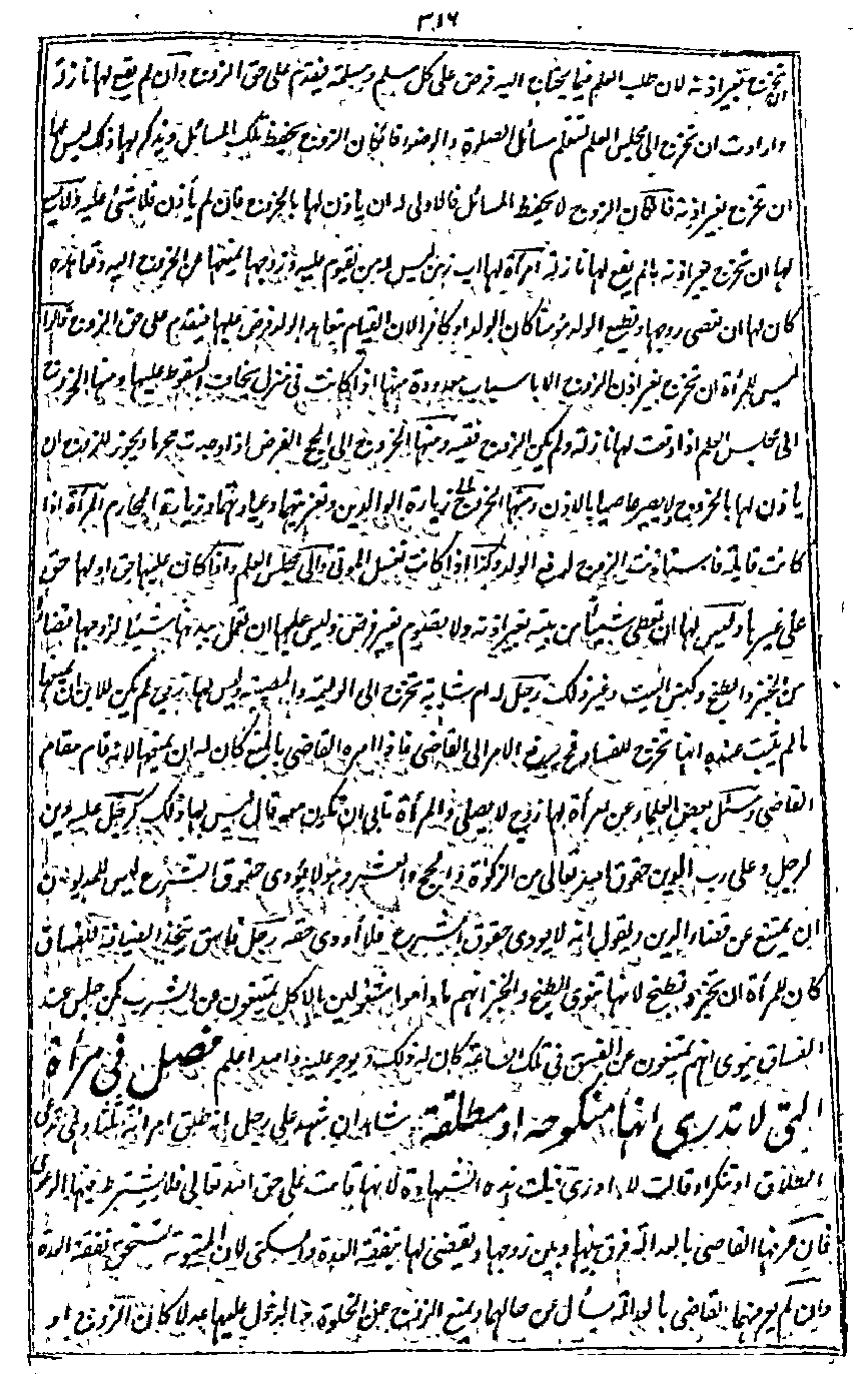 ٣١٦
ان تخرج بغير اذنه لان طلب العلم فيما يحتاج اليه فرض على كل مسلم ومسلمة فيقدم على حق الزوج وان لم يقع لها نازلة
وارادت ان تخرج الى مجلس العلم لتعلم مسائل الصلوة والوضوء فان كان الزوج يحفظ تلك المسائل ويذكر لها ذلك ليس لها
ان تخرج بغير اذنه فان كان الزوج لا يحفظ المسائل فالاولى له ان ياذن لها بالخروج فان لم يأذن فلا شئ عليه ولا يسع
لها ان تخرج بغير اذنه ما لم يقع لها نازلة امرأة لها اب زمن ليس له من يقوم عليه وزوجها يمنعها عن الخروج اليه وتعاهده
كان لها ان تعصى زوجها وتطيع الوالد مؤمنا كان الوالد او كافرا لان القيام بتعاهد الوالد فرض عليها فيقدم على حق الزوج
ليس للمرأة ان تخرج بغير اذن الزوج الا باسباب معدودة منها اذا كانت فى منزل يخاف السقوط عليها ومنها الخروج
الى مجلس العلم اذا وقعت لها نازلة ولم يكن الزوج فقيها ومنها الخروج الى الحج الفرض اذا وجدت محرما ويجوز للزوج ان
ياذن لها بالخروج ولا يصير عاصيا بالاذن ومنها الخروج الى زيارة الوالدين وتعزيتهما وعيادتهما وزيارة المحارم المرأة اذا
كانت قابلة فاستاذنت الزوج لدفع الولد وكذا اذا كانت تغسل الموتى والى مجلس العلم واذا كان عليها حق او لها حق
على غيرها وليس لها ان تعطى شيئا من بيته بغير اذنه ولا تصوم بغير فرض وليس عليها ان تعمل بيدها شيئا لزوجها قضاء
من الخبز والطبخ وكنس البيت وغير ذلك رجل له ام شابة تخرج الى الوليمة والمصيبة وليس لها زوج لم يكن للابن ان يمنعها
ما لم يثبت عنده انها تخرج للفساد فح يرفع الامر الى القاضى فاذا امره القاضى بالمنع كان له ان يمنعها لانه قام مقام
القاضى وسئل بعض العلماء عن امرأة لها زوج لا يصلى والمرأة تابى ان تكون معه قال ليس لها ذلك كرجل عليه دين
لرجل وعلى رب الدين حقوق الله تعالى من الزكوة والحج والعشر وهو لا يؤدى حقوق الشرع ليس للمديون
ان يمتنع عن قضاء الدين ويقول انه لا يودى حقوق الشرع فلا أودى حقه رجل فاسق يتخذ الضيافة للفساق
كان للمرأة ان تخبز وتطبخ لانها تنوى الطبخ والخبز انهم ما داموا مشغولين بالاكل يمتنعون عن الشرب كمن جلس عند
الفساق ينوى انهم يمتنعون عن الفسق فى تلك الساعة كان له ذلك ويوجر عليه والله اعلم فصل فى مرأة
التى لا تدرى انها منكوحة او مطلقة شاهدان شهدا على رجل انه طلق امرأته ثلثا وهى تدعى
الطلاق او تنكر او قالت لا ادرى قبلت هذه الشهادة لانها قامت على حق الله تعالى فلا يشترط فيها الدعوى
فان عرفهما القاضى بالعدالة فرق بينها وبين زوجها ويقضى لها بنفقة العدة والسكنى لان المبتوتة تستحق نفقة العدة
وان لم يعرفهما القاضى بالعدالة يسأل عن حالهما ويمنع الزوج عن الخلوة والدخول عليها عدلا كان الزوج او